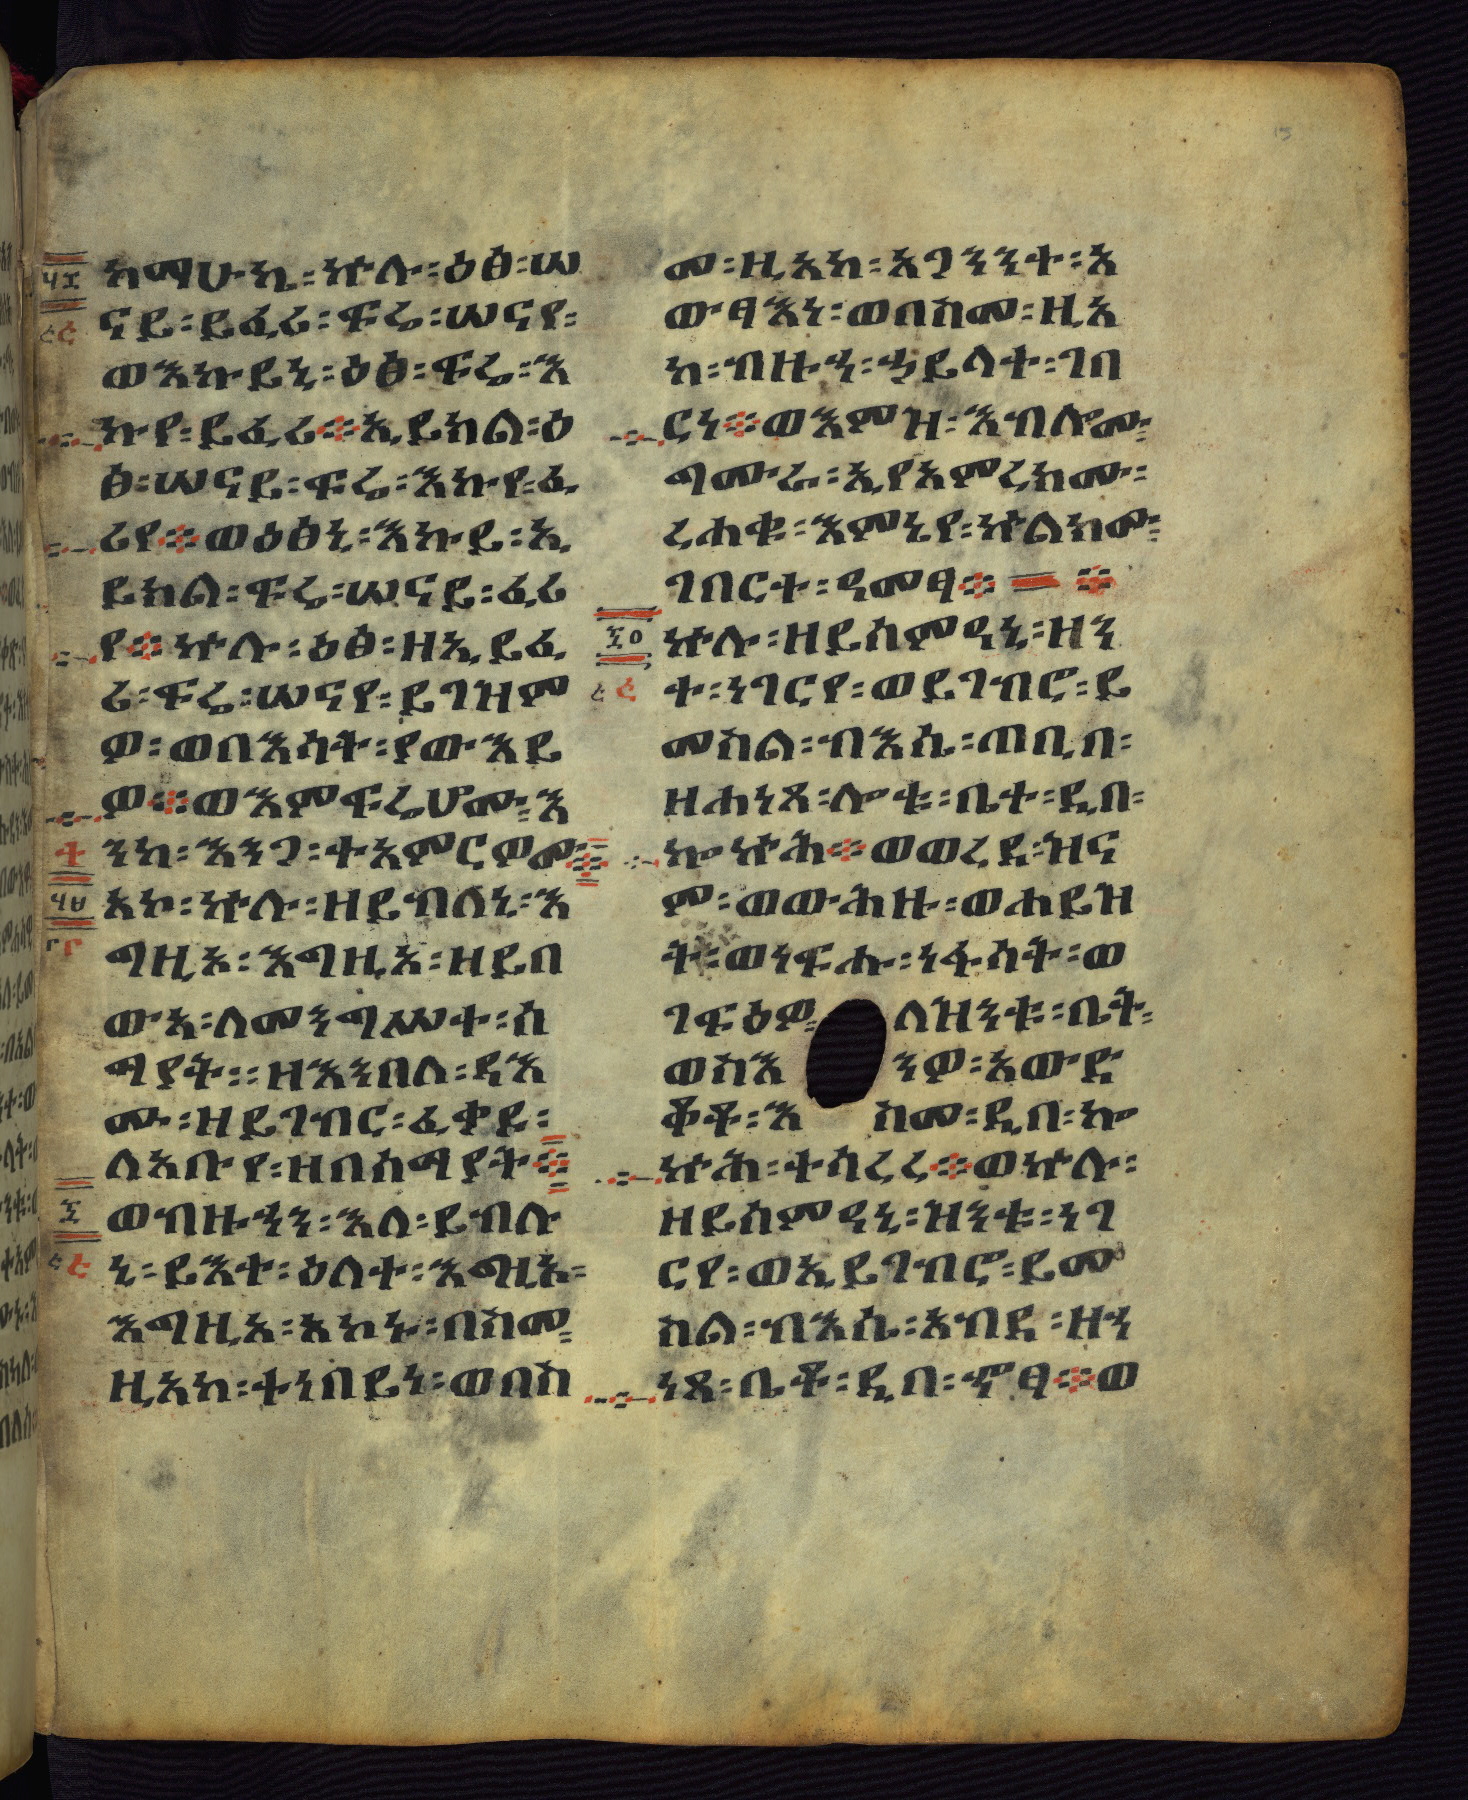 ከማሁኬ፡ኵሉ፡ዕፅ፡ሠ
ናይ፡ይፈሪ፡ፍሬ፡ሠናየ፡
ወእኩይኒ፡ዕፅ፡ፍሬ፡እ
ኩየ፡ይፈሪ፨ኢይክል፡ዕ
ፅ፡ሠናይ፡ፍሬ፡እኩየ፡ፈ
ሪየ፨ወዕፅኒ፡እኩይ፡ኢ
ይክል፡ፍሬ፡ሠናይ፡ፈሪ
የ፨ኵሉ፡ዕፅ፡ዘኢይፈ
ሪ፡ፍሬ፡ሠናየ፡ይገዝም
ዎ፡ወበእሳት፡የውእይ
ዎ፨ወእምፍሬሆሙ፡እ
ንከ፡እንጋ፡ተአምርዎሙ፨
አኮ፡ኵሉ፡ዘይብለኒ፡እ
ግዚኦ፡እግዚኦ፡ዘይበ
ውእ፡ለመንግሥተ፡ሰ
ማያት፡፡ዘእንበለ፡ዳእ
ሙ፡ዘይገብር፡ፈቃደ፡
ለአቡየ፡ዘበሰማያት፨
ወብዙኃን፡እለ፡ይብሉ
ኒ፡ይእተ፡ዕለተ፡እግዚኦ፡
እግዚኦ፡አኮኑ፡በስመ፡
ዚአከ፡ተነበይነ፡ወበስ
መ፡ዚአከ፡አጋንንተ፡አ
ውፃእነ፡ወበስመ፡ዚአ
ከ፡ብዙኃ፡ኃይላተ፡ገበ
ርነ፨ወእምዝ፡እብሎሙ፡
ግሙራ፡ኢየአምረክሙ፡
ረሐቁ፡እምኒየ፡ኵልክሙ፡
ገበርተ፡ዓመፃ፨ ፨
ኵሉ፡ዘይሰምዓኒ፡ዘን
ተ፡ነገርየ፡ወይገብሮ፡ይ
መስል፡ብእሴ፡ጠቢበ፡
ዘሐነጸ፡ሎቱ፡ቤተ፡ዲበ፡
ኰኵሕ፨ወወረደ፡ዝና
ም፡ወውሕዙ፡ወሐይዝ
ት፡ወነፍሑ፡ነፋሳት፡ወ
ገፍዕዎ፡ለዝንቱ፡ቤት፡
ወስእንዎ፡አውድ
ቆቶ፡እስመ፡ዲበ፡ኰ
ኵሕ፡ተሳረረ፨ወኵሉ፡
ዘይሰምዓኒ፡ዝንቱ፡ነገ
ርየ፡ወኢይገብሮ፡ይመ
ስል፡ብእሴ፡አብደ፡ዘሓ
ነጸ፡ቤቶ፡ዲበ፡ኆፃ፨ወ